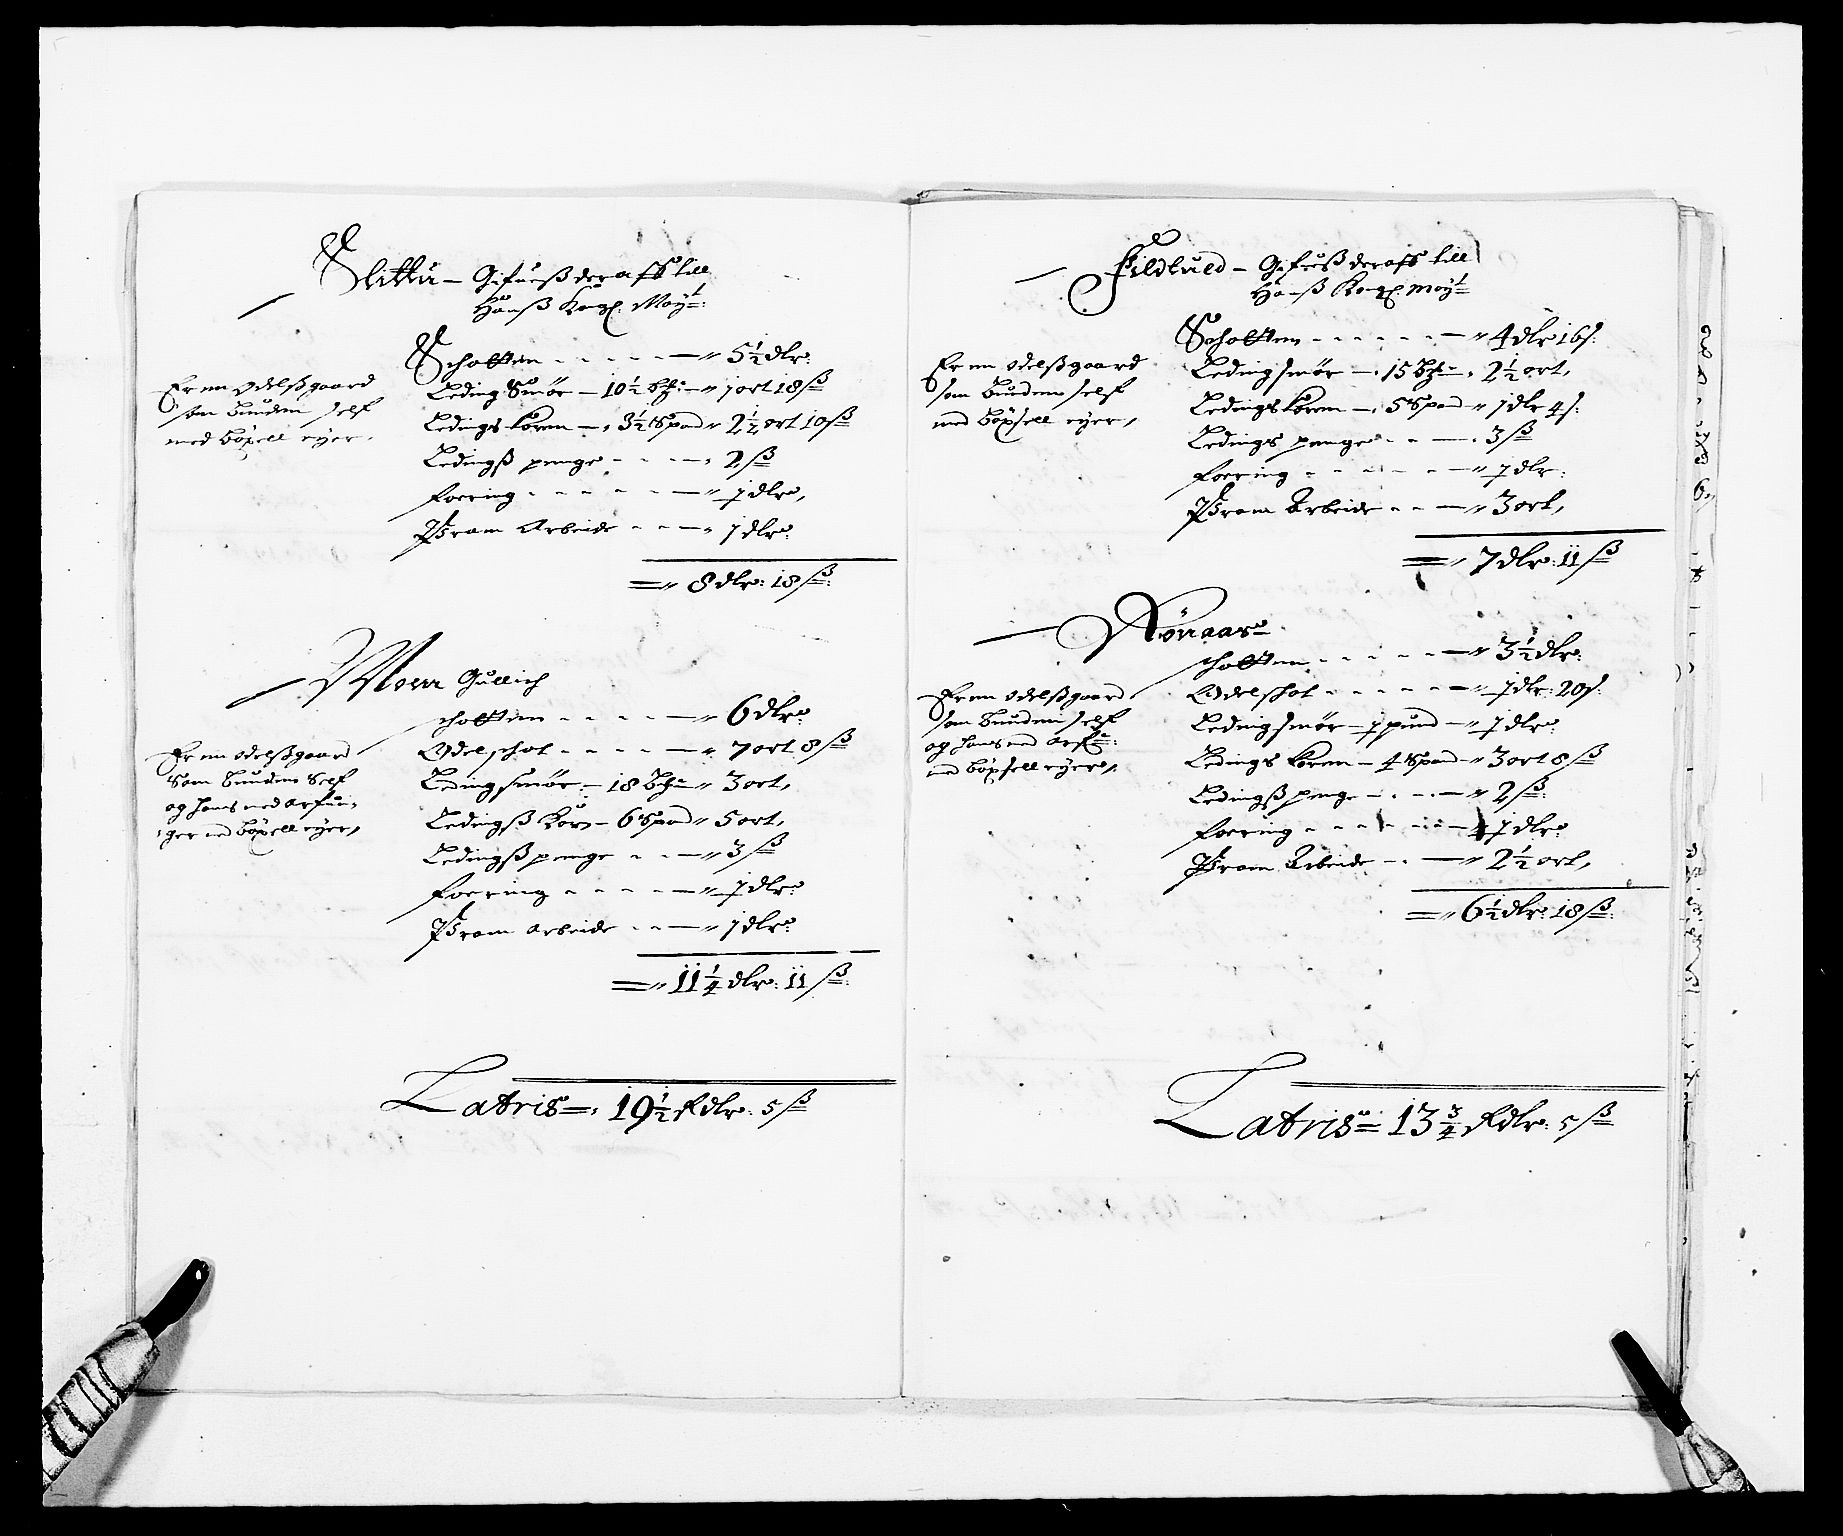 Slittu – Gifueß deraff till
Hanß Kongl. Mayt:
Er en odelßgaard
som bunden self
med böxell eyer.
Schatten – 5½ dlr:
Leding Smör – 10½ – 1 ort 18 ß
Ledings korn – 3½ Spand 2½ ort 10 ß
Ledingß penge – 2 ß
foering – 1 dlr,
Pram Arbeide – 1 dlr:
8 dlr: 18 ß:
Moen Gullich
Er en odelßgaard
som bunden self
og hans med arfuin,
ger med böxell eyer,
Schatten – 6 dlr:
Odelschat – 7 ort 8 ß
Ledingsmör – 18 – 3 ort,
Ledingß korn – 6 Spand 5 ort,
Ledingß penge – 3 ß
foering – 1 dlr:
Pram arbeide – 1 dlr:
11¼ dlr: 11 ß:
Latris – 19½ Rdlr: 5 ß
Gifueß deraff till
Hanß Kongl. Mayt
Er en odelßgaard
som bunden self
med böxsell eyer,
Schatten – 4 dlr 16 ß:
Ledingsmör – 15 – 2½ ort,
Ledings korn – 5 Spand 1 dlr 4 ß:
Ledings penge – 3 ß
foering – 1 dlr:
Pram Arbeide – 3 ort,
7 dlr: 11 ß
Rönaas
Er en odelßgaard
som bunden self
og hans med
med böxsell eyer,
Schatten – 3½ dlr:
Odelschat – 1 dlr: 20 ß:
Ledingsmör – 1 pund – 1 dlr:
Ledings korn – 4 Spand – 3 ort 8 ß
Ledingß penge – 2 ß:
foering – 1 dlr:
Pram Arbeide – 2½ ort,
6½ dlr: 18 ß:
Latris – 13¾ Rdlr: 5 ß